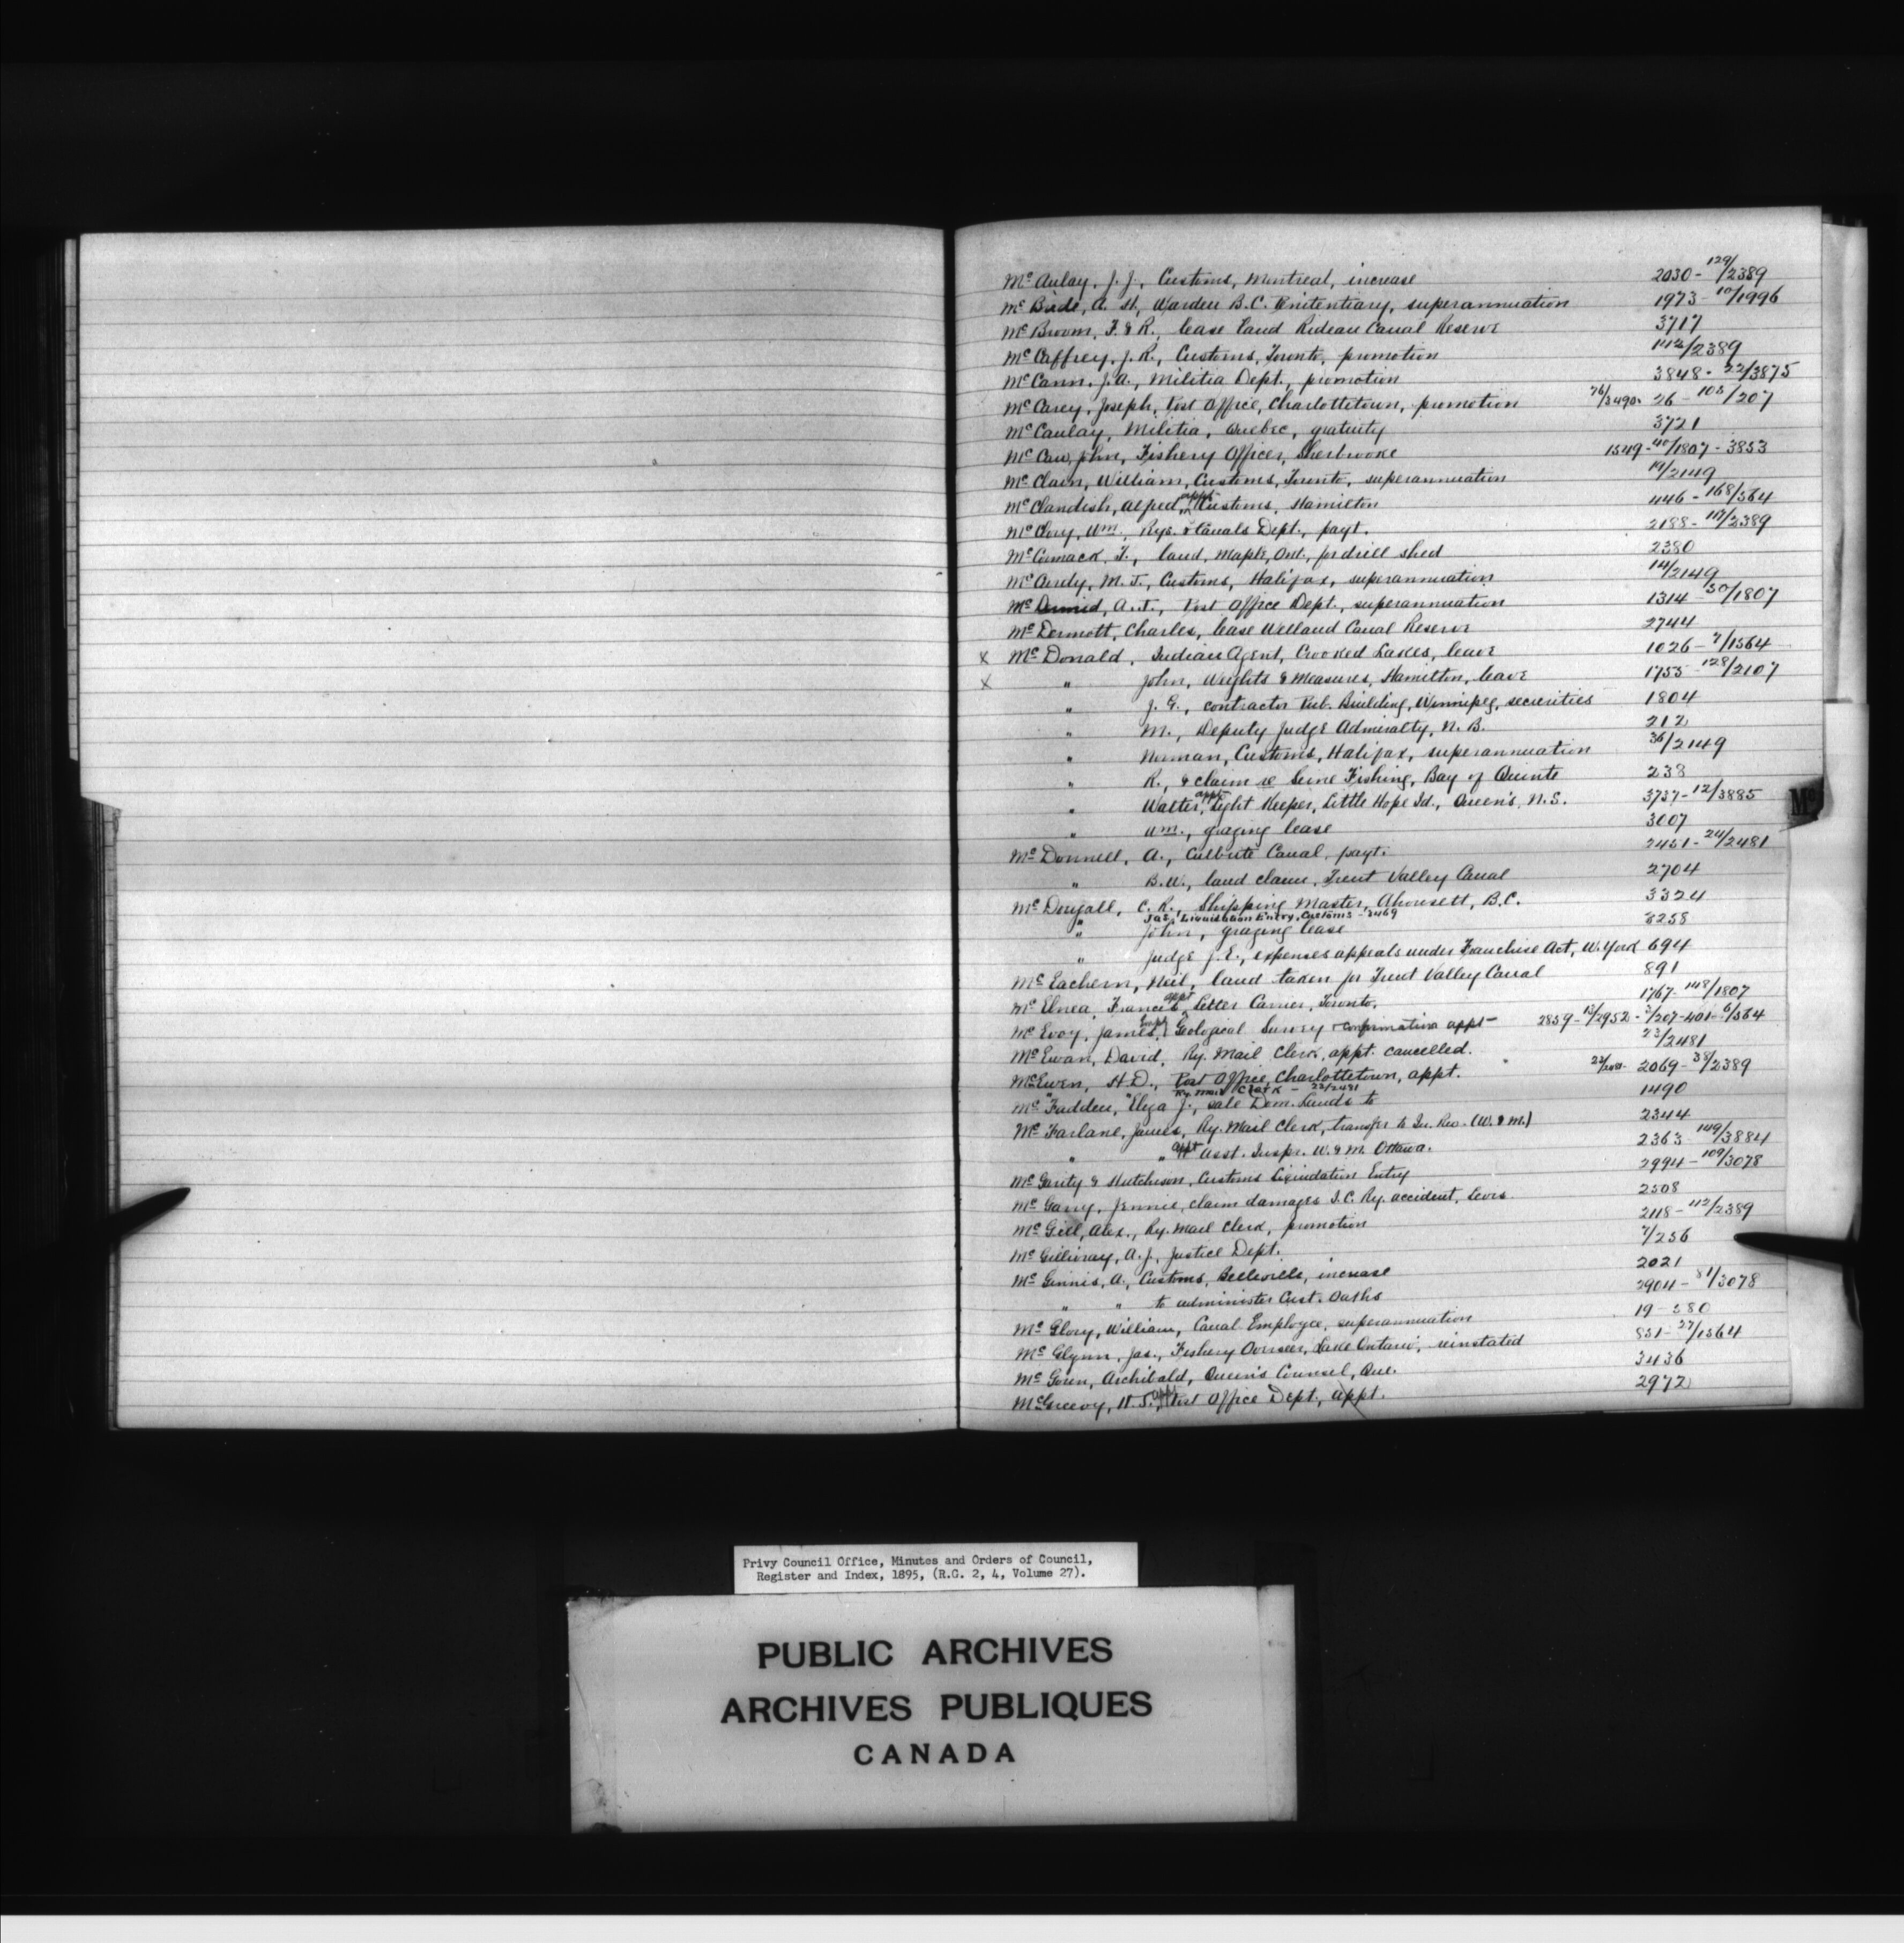 McAulay, J. J., Customs, Montreal, increase 2030 - 129/2389
McBride, A. H., Warden B.C. Penitentiary, superannuation 1973 - 10/1996
McBroom, F. & R., lease land Rideau Canal Reserve 3717
McCaffrey, J. R., Customs, Toronto, promotion 142/2389
McCann, J. A., Militia Dept., promotion 3848 - 22/3875
McCarey, Joseph, Post Office, Charlottetown, promotion 76/3490. 26 - 105/207
McCaulay, Militia, Quebec, gratuity 3721
McCaw, John, Fishery Officer, Sherbrooke 1549 - 40/1807 - 3853
McClain, William, Customs, Toronto, superannuation 19/2149
McClandish, Alfred, appt Customs, Hamilton 446 - 168/564
McClory, Wm., Rys. & Canals Dept., payt. 2188 - 117/2389
McCormack, T., land, Maple, Ont., for drill shed 2380
McCurdy, M. J., Customs, Halifax, superannuation 14/2149
McDermid, A. T., Post Office Dept., superannuation 1314 - 30/1807
McDermott, Charles, lease Welland Canal Reserve 2744
X McDonald, Indian Agent, Crooked Lakes, leave 1026 - 7/1564
X " John, Weights & Measures, Hamilton, leave 1755 - 128/2107
" J. G., contractor Pub. Building, Winnipeg, securities 1804
" M., Deputy Judge Admiralty, N.B. 212
" Norman, Customs, Halifax, superannuation 36/2149
" R., & claim re Seine Fishing, Bay of Quinte 238
" Walter, appt Light Keeper, Little Hope Id., Queen's, N.S. 3737 - 12/3885
Mc
" Wm., grazing lease 3007
McDonnell, A., Culbute Canal, payt. 2451 - 24/2481
" B. W., land claim, Trent Valley Canal 2704
McDougall, C. R., Shipping Master, Ahousett, B.C. 3324
" Jas. Liquidation Entry, Customs - 3469
" John, grazing lease 3258
" Judge J. E., expenses appeals under Franchise Act, W. York 694
McEachern, Neil, land taken for Trent Valley Canal 891
McElnea, Francis, appt Letter Carrier, Toronto, 1767 - 148/1807
McEvoy, James, Empl Geological Survey & confirmation appt - 2859 - 13/2952 - 3/207 - 401 - 6/564
McEwan, David, Ry. Mail Clerk, appt. cancelled. 23/2481
McEwen, H. D., Post Office, Charlottetown, appt. 23/2481 - 2069 - 38/2389
" " Ry. Mail Clerk - 23/2481
McFadden, Eliza J., sale Dom. Lands to 1490
McFarlane, James, Ry. Mail Clerk, transfer to In. Rev. (W. & M.) 2344
" " appt Asst. Inspr. W. & M. Ottawa. 2363 - 149/3884
McGarity & Hutchison, Customs Liquidation Entry 2994 - 109/3078
McGarry, Jennie, claim damages I. C. Ry. accident, Levis 2508
McGill, Alex., Ry. Mail Clerk, promotion 2118 - 112/2389
McGillivray, A. J., Justice Dept. 7/256
McGinnis, A., Customs, Belleville, increase 2021
" " to administer Cust. Oaths 2904 - 81/3078
McGlory, William, Canal Employee, superannuation 19 - 380
McGlynn, Jas., Fishery Overseer, Lake Ontario, reinstated 851 - 27/1564
McGoun, Archibald, Queen's Counsel, Que. 3436
McGreevy, H. S., appt Post Office Dept., appt. 2972
Privy Council Office, Minutes and Orders of Council,
Register and Index, 1895, (R.G. 2, 4, Volume 27).
PUBLIC ARCHIVES
ARCHIVES PUBLIQUES
CANADA